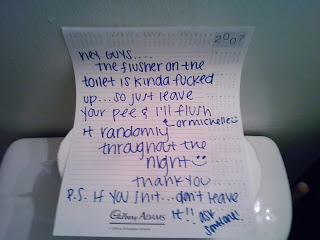 2007
HEY GUYS....
The flusher on the
toilet is kinda fucked
up...so just leave
your pee & I'll flush
it randomly or michelle
throughout the
night
thank you
P.S. If you shit...don't leave
it!! ask
someone!
Cadbury ADAMS